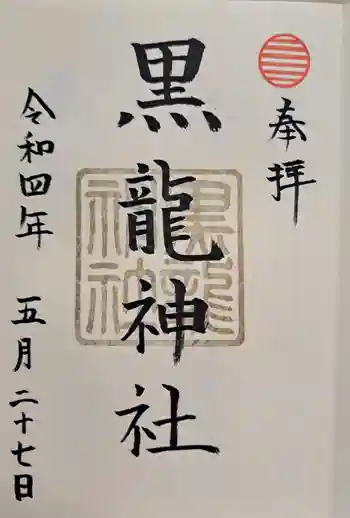 奉拝
黒龍神社
黒龍
神社
令和四年 五月二十七日